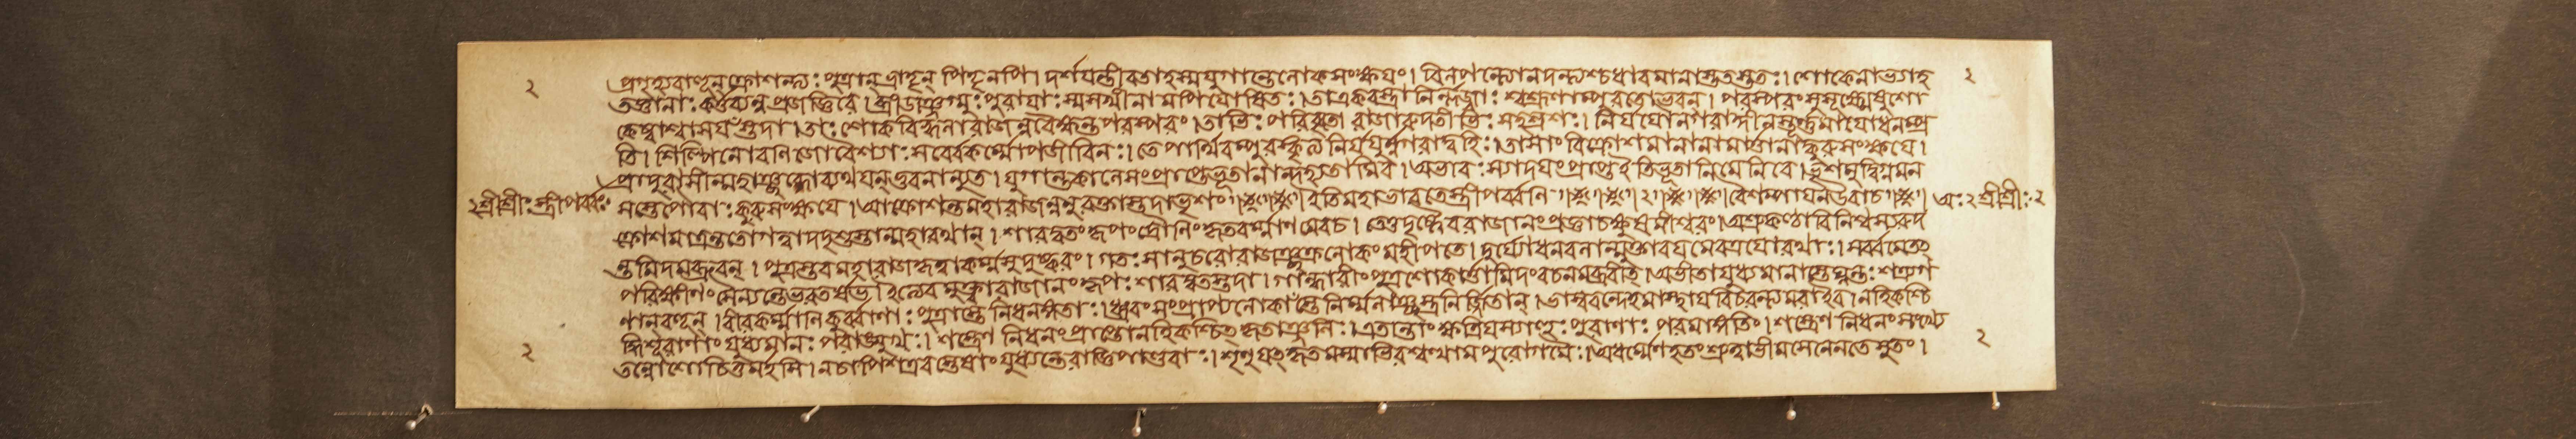 ২ প্রগৃহ্যবাহূন্ ক্রোশন্ত্যঃ পুত্রান্ ভ্রাতৄন্ পিতৄনপি। দর্শয়ন্তীবতাহস্মযুগান্তেলোকসংক্ষয়ং। বিলপন্ত্যোরুদন্ত্যশ্চধাবমানাস্ততস্ততঃ। শোকেনাভ্যাহ ২
তজ্ঞানাঃ কর্তব্যন্নপ্রজজ্ঞিরে। ব্রীডাঞ্জগ্মুঃ পুরাযাঃস্মসখীনামপিযোষিতঃ। তাএকবস্ত্রানির্লজ্জাঃ শ্বশ্রূণাম্পুরতোভবন্। পরস্পরংসুসূক্ষ্মেষুশো
কেষ্বাশ্বাসয়ংস্তদা। তাঃ শোকবিহ্বলারাজন্নবৈক্ষন্তপরস্পরং। তাভিঃ পরিবৃতো রাজারুদতীভিঃ সহস্রশঃ। নির্যযৌনগরাদ্দীনস্তূর্ণমাযোধনম্প্র
তি। শিল্পিনোবণিজোবৈশ্যাঃ সর্বেকর্ম্মোপজীবিনঃ। তেপার্থিবম্পুরস্কৃত্য নির্যযুর্নগরাদ্বহিঃ। তাসাং বিক্রোশমানানামার্ত্তানাঙ্কুরুসংক্ষযে।
প্রাদুরাসীন্মহাঞ্ছব্দোব্যথযন্ভুবনান্যুত। যুগান্তকালেসংপ্রাপ্তেভূতানান্দহ্যতামিব। অভাবঃ স্যাদযংপ্রাপ্তইতিভূতানিমেনিরে। ভৃশমুদ্বিগ্নমন
২শ্রীশ্রীঃস্ত্রীপর্ব্বঃ সস্তেপৌরাঃ কুরুসংক্ষযে। আক্রোশন্তমহারাজন্ননুরক্তাস্তদাভৃশং। ইতিমহাভারতেস্ত্রীপর্ব্বনি ।২। বৈশম্পাযনউবাচ। অঃ ২ শ্রীশ্রীঃ ২
ক্রোশমাত্রন্ততোগত্বাদদৃশুস্তান্মহারথান্। শারদ্বতংকৃপংদ্রৌণিংকৃতবর্ম্মাণমেবচ। তেতুদৃষ্ট্বৈবরাজানংপ্রজ্ঞাচক্ষুষমীশ্বরং। অশ্রুকণ্ঠাবিনিশ্বস্যরুদ
ন্তমিদমব্রুবন্। পুত্রস্তবমহারাজকৃত্বাকর্ম্মসুদুষ্করং। গতঃ সানুচরোরাজঞ্ছক্রলোকংমহীপতে। দুর্য্যোধনবলান্মুক্তাবযমেবত্রযোরথাঃ। সর্ব্বমেতৎ
পরিক্ষীণংসৈন্যন্তেভরতর্ষভ। ইত্যেবমুক্ত্বারাজানংকৃপঃ শারদ্বতস্তদা। গান্ধারীংপুত্রশোকার্ত্তামিদংবচনমব্রবীত্। অভীতাযুধ্যমানাস্তেঘ্নন্তঃ শত্রুগ
ণান্বহূন্। বীরকর্ম্মাণিকুর্ব্বাণাঃ পুত্রাস্তে নিধনঙ্গতাঃ। ধ্রুবং সংপ্রাপ্যলোকাংস্তেনির্ম্মলাঞ্ছস্ত্রনির্জ্জিতান্। ভাস্বরন্দেহমাস্থায বিচরন্ত্যমরাইব। নহিকশ্চি
দ্ধিশূরাণাং যুধ্যমানঃ পরাঙ্মুখঃ। শস্ত্রেণ নিধনং প্রাপ্তোনহিকশ্চিত্কৃতাঞ্জলিঃ। এতান্তাংক্ষত্রিযস্যাহুঃ পুরাণাঃ পরমাঙ্গতিং। শস্ত্রেণ নিধনংসংখ্যে
২ তন্নশোচিতুমর্হসি। নচাপিশত্রবস্তেষাং যুধ্যন্তেরাজ্ঞিপাণ্ডবাঃ। শৃণুযত্কৃতমস্মাভিরশ্বত্থামপুরোগমৈঃ। অধর্ম্মেণহতংশ্রুত্বাভীমসেনেনতেসুতং। ২